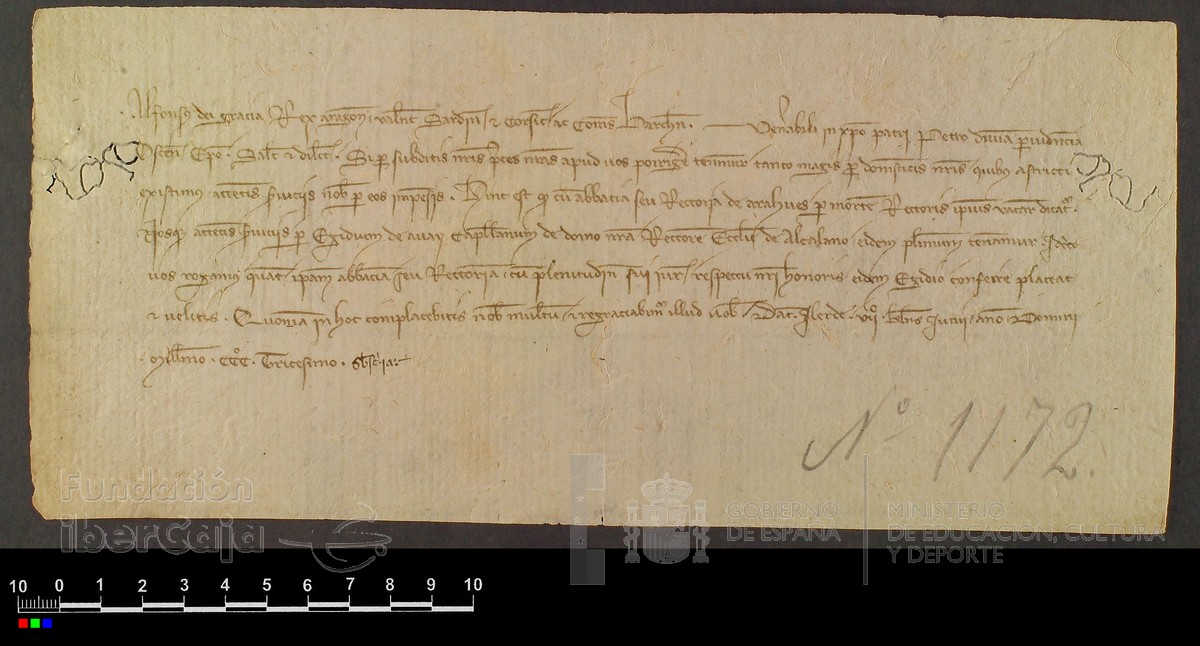 Alfonsus dei gracia Rex Aragon Valent Sardin et Corsic ac Comes Barchn. Venerabili in xpo patri Petro divina providencia
Oscen Epo. Salt et dilect. Si pro subditis nris preces nras apud vos porrigere tenemur tanto magis pro domesticis nris quibus astricti
existimus attentis serviciis nob per eos impensis. Hinc est qd cum abbacia seu Rectoria de arahues per mortem Rectoris ipius vacare dicatr.
Nosque attentis serviciis per Egidium de avari Capellanum de domo nra Rectorem Ecclie de Alcalano eidem plurimum teneamur. Idcirco
vos rogamus quat ipam abbaciam seu Rectoriam cum plenitudine sui iuris respectu nri honoris eidem Egidio conferre placeat
et velitis. Quoniam in hoc complacebitis nob multum et regraciabimr illud vob. Dat. Ilerde. VII. kls Junii anno Domini
Millmo. CCCo. Tricesimo.
No 1172.
Fundación
iberCaja
GOBIERNO
DE ESPAÑA
MINISTERIO
DE EDUCACIÓN, CULTURA
Y DEPORTE
10 0 1 2 3 4 5 6 7 8 9 10